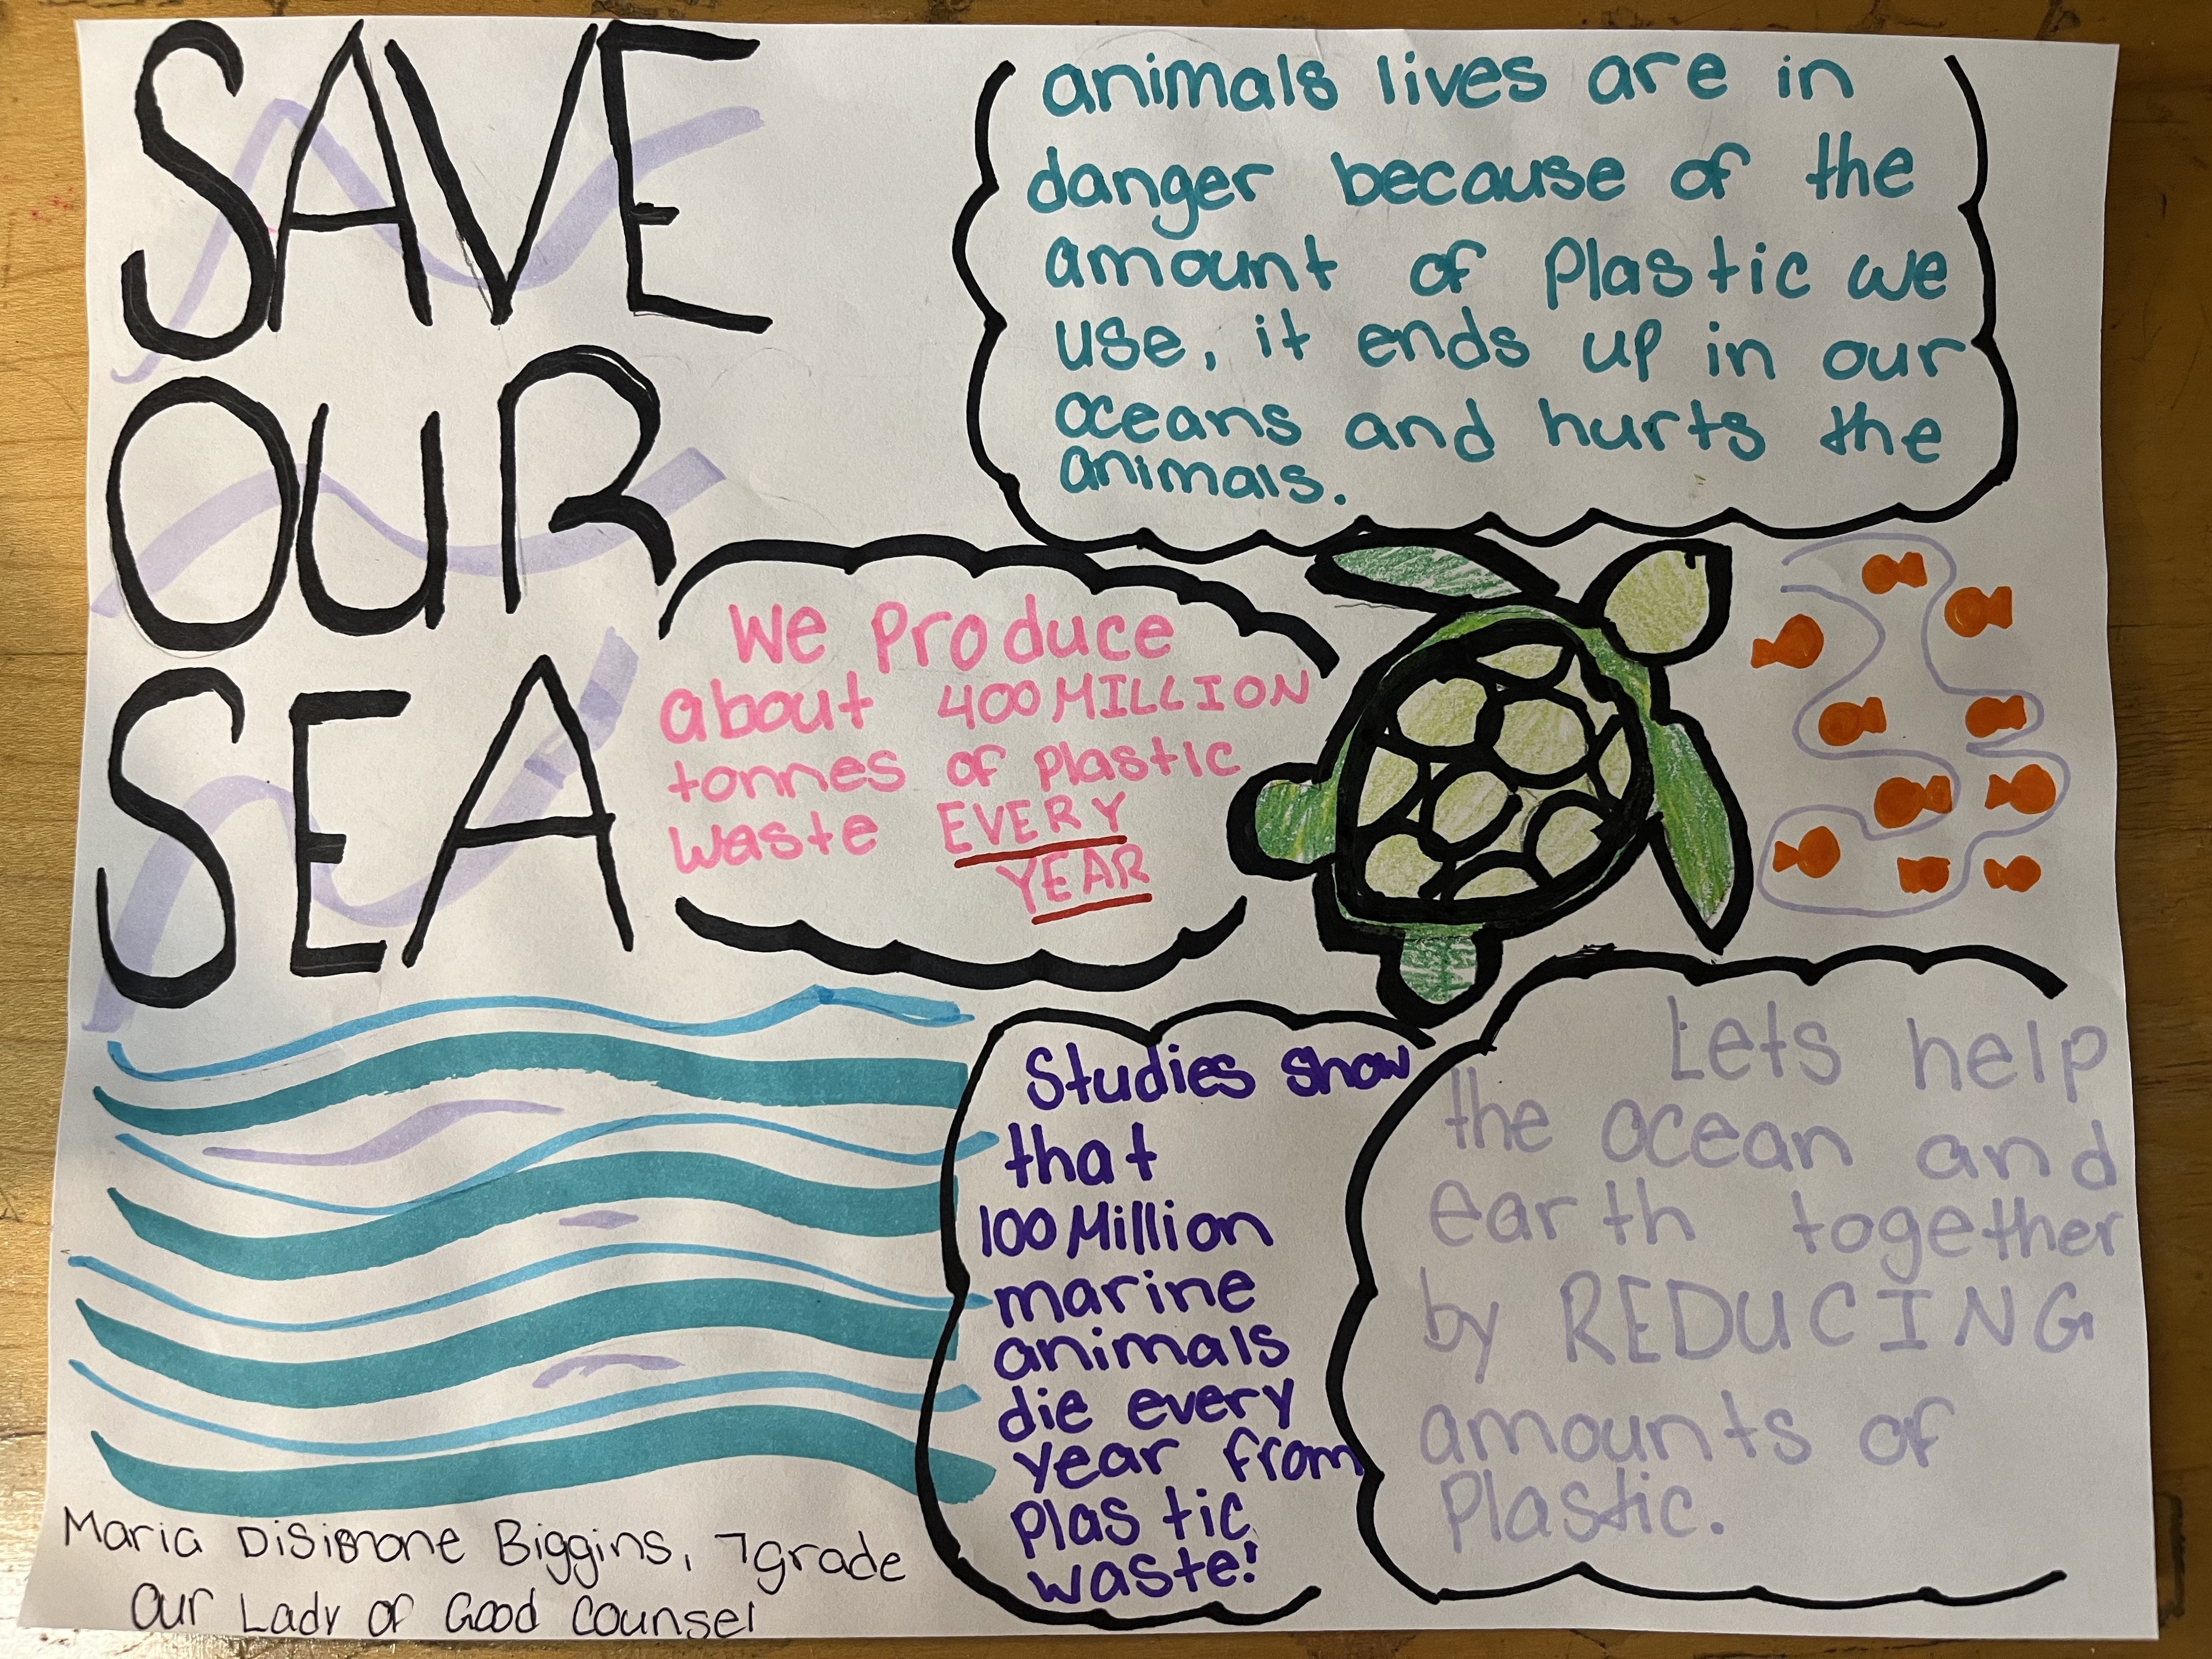 SAVE
OUR
SEA
animals lives are in
danger because of the
amount of plastic we
use, it ends up in our
oceans and hurts the
animals.
We produce
about 400 MILLION
tonnes of plastic
waste EVERY
YEAR
Studies show
that
100 Million
marine
animals
die every
year from
plastic
waste!
Lets help
the ocean and
earth together
by REDUCING
amounts of
plastic.
Maria DiSimone Biggins, 7grade
Our Lady of Good Counsel